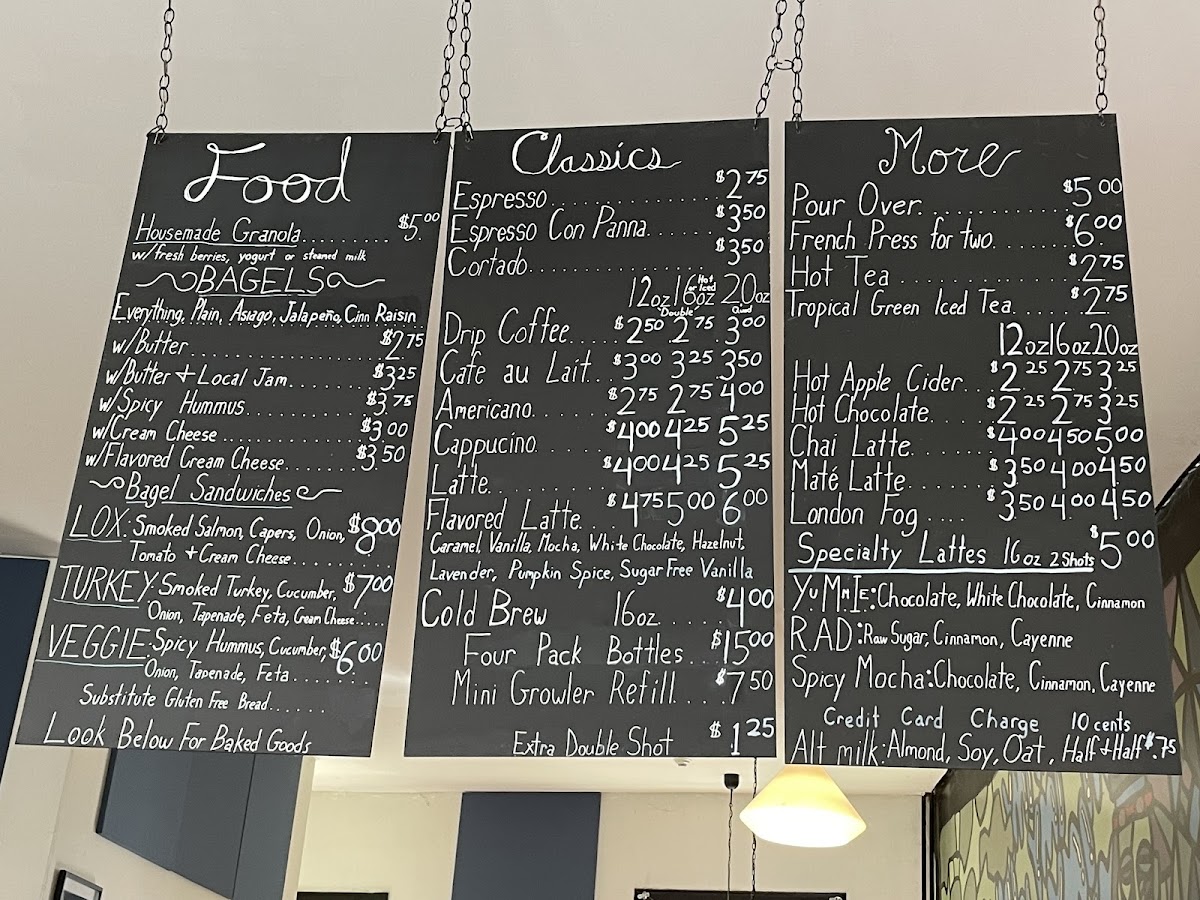 Food
Housemade Granola $5.00
w/fresh berries, yogurt or steamed milk
BAGELS
Everything, Plain, Asiago, Jalapeño, Cinn Raisin
w/Butter $2.75
w/Butter + Local Jam $3.25
w/Spicy Hummus $3.75
w/Cream Cheese $3.00
w/Flavored Cream Cheese $3.50
Bagel Sandwiches
LOX: Smoked Salmon, Capers, Onion, $8.00
Tomato + Cream Cheese
TURKEY: Smoked Turkey, Cucumber, $7.00
Onion, Tapenade, Feta, Cream Cheese
VEGGIE: Spicy Hummus, Cucumber, $6.00
Onion, Tapenade, Feta
Substitute Gluten Free Bread
Look Below For Baked Goods
Classics
Espresso $2.75
Espresso Con Panna $3.50
Cortado $3.50
Hot or Iced
12oz 16oz 20oz
Double
Drip Coffee $2.50 2.75 3.00
Cafe au Lait $3.00 3.25 3.50
Americano $2.75 2.75 4.00
Cappucino $4.00 4.25 5.25
Latte $4.00 4.25 5.25
Flavored Latte $4.75 5.00 6.00
Caramel, Vanilla, Mocha, White Chocolate, Hazelnut,
Lavender, Pumpkin Spice, Sugar Free Vanilla
Cold Brew 16oz $4.00
Four Pack Bottles $15.00
Mini Growler Refill $7.50
Extra Double Shot $1.25
More
Pour Over $5.00
French Press for two $6.00
Hot Tea $2.75
Tropical Green Iced Tea $2.75
12oz 16oz 20oz
Hot Apple Cider $2.25 2.75 3.25
Hot Chocolate $2.25 2.75 3.25
Chai Latte $4.00 4.50 5.00
Maté Latte $3.50 4.00 4.50
London Fog $3.50 4.00 4.50
Specialty Lattes 16oz 2 Shots $5.00
YuMmIE: Chocolate, White Chocolate, Cinnamon
R.AD: Raw Sugar, Cinnamon, Cayenne
Spicy Mocha: Chocolate, Cinnamon, Cayenne
Credit Card Charge 10 cents
Alt milk: Almond, Soy, Oat, Half + Half $.75